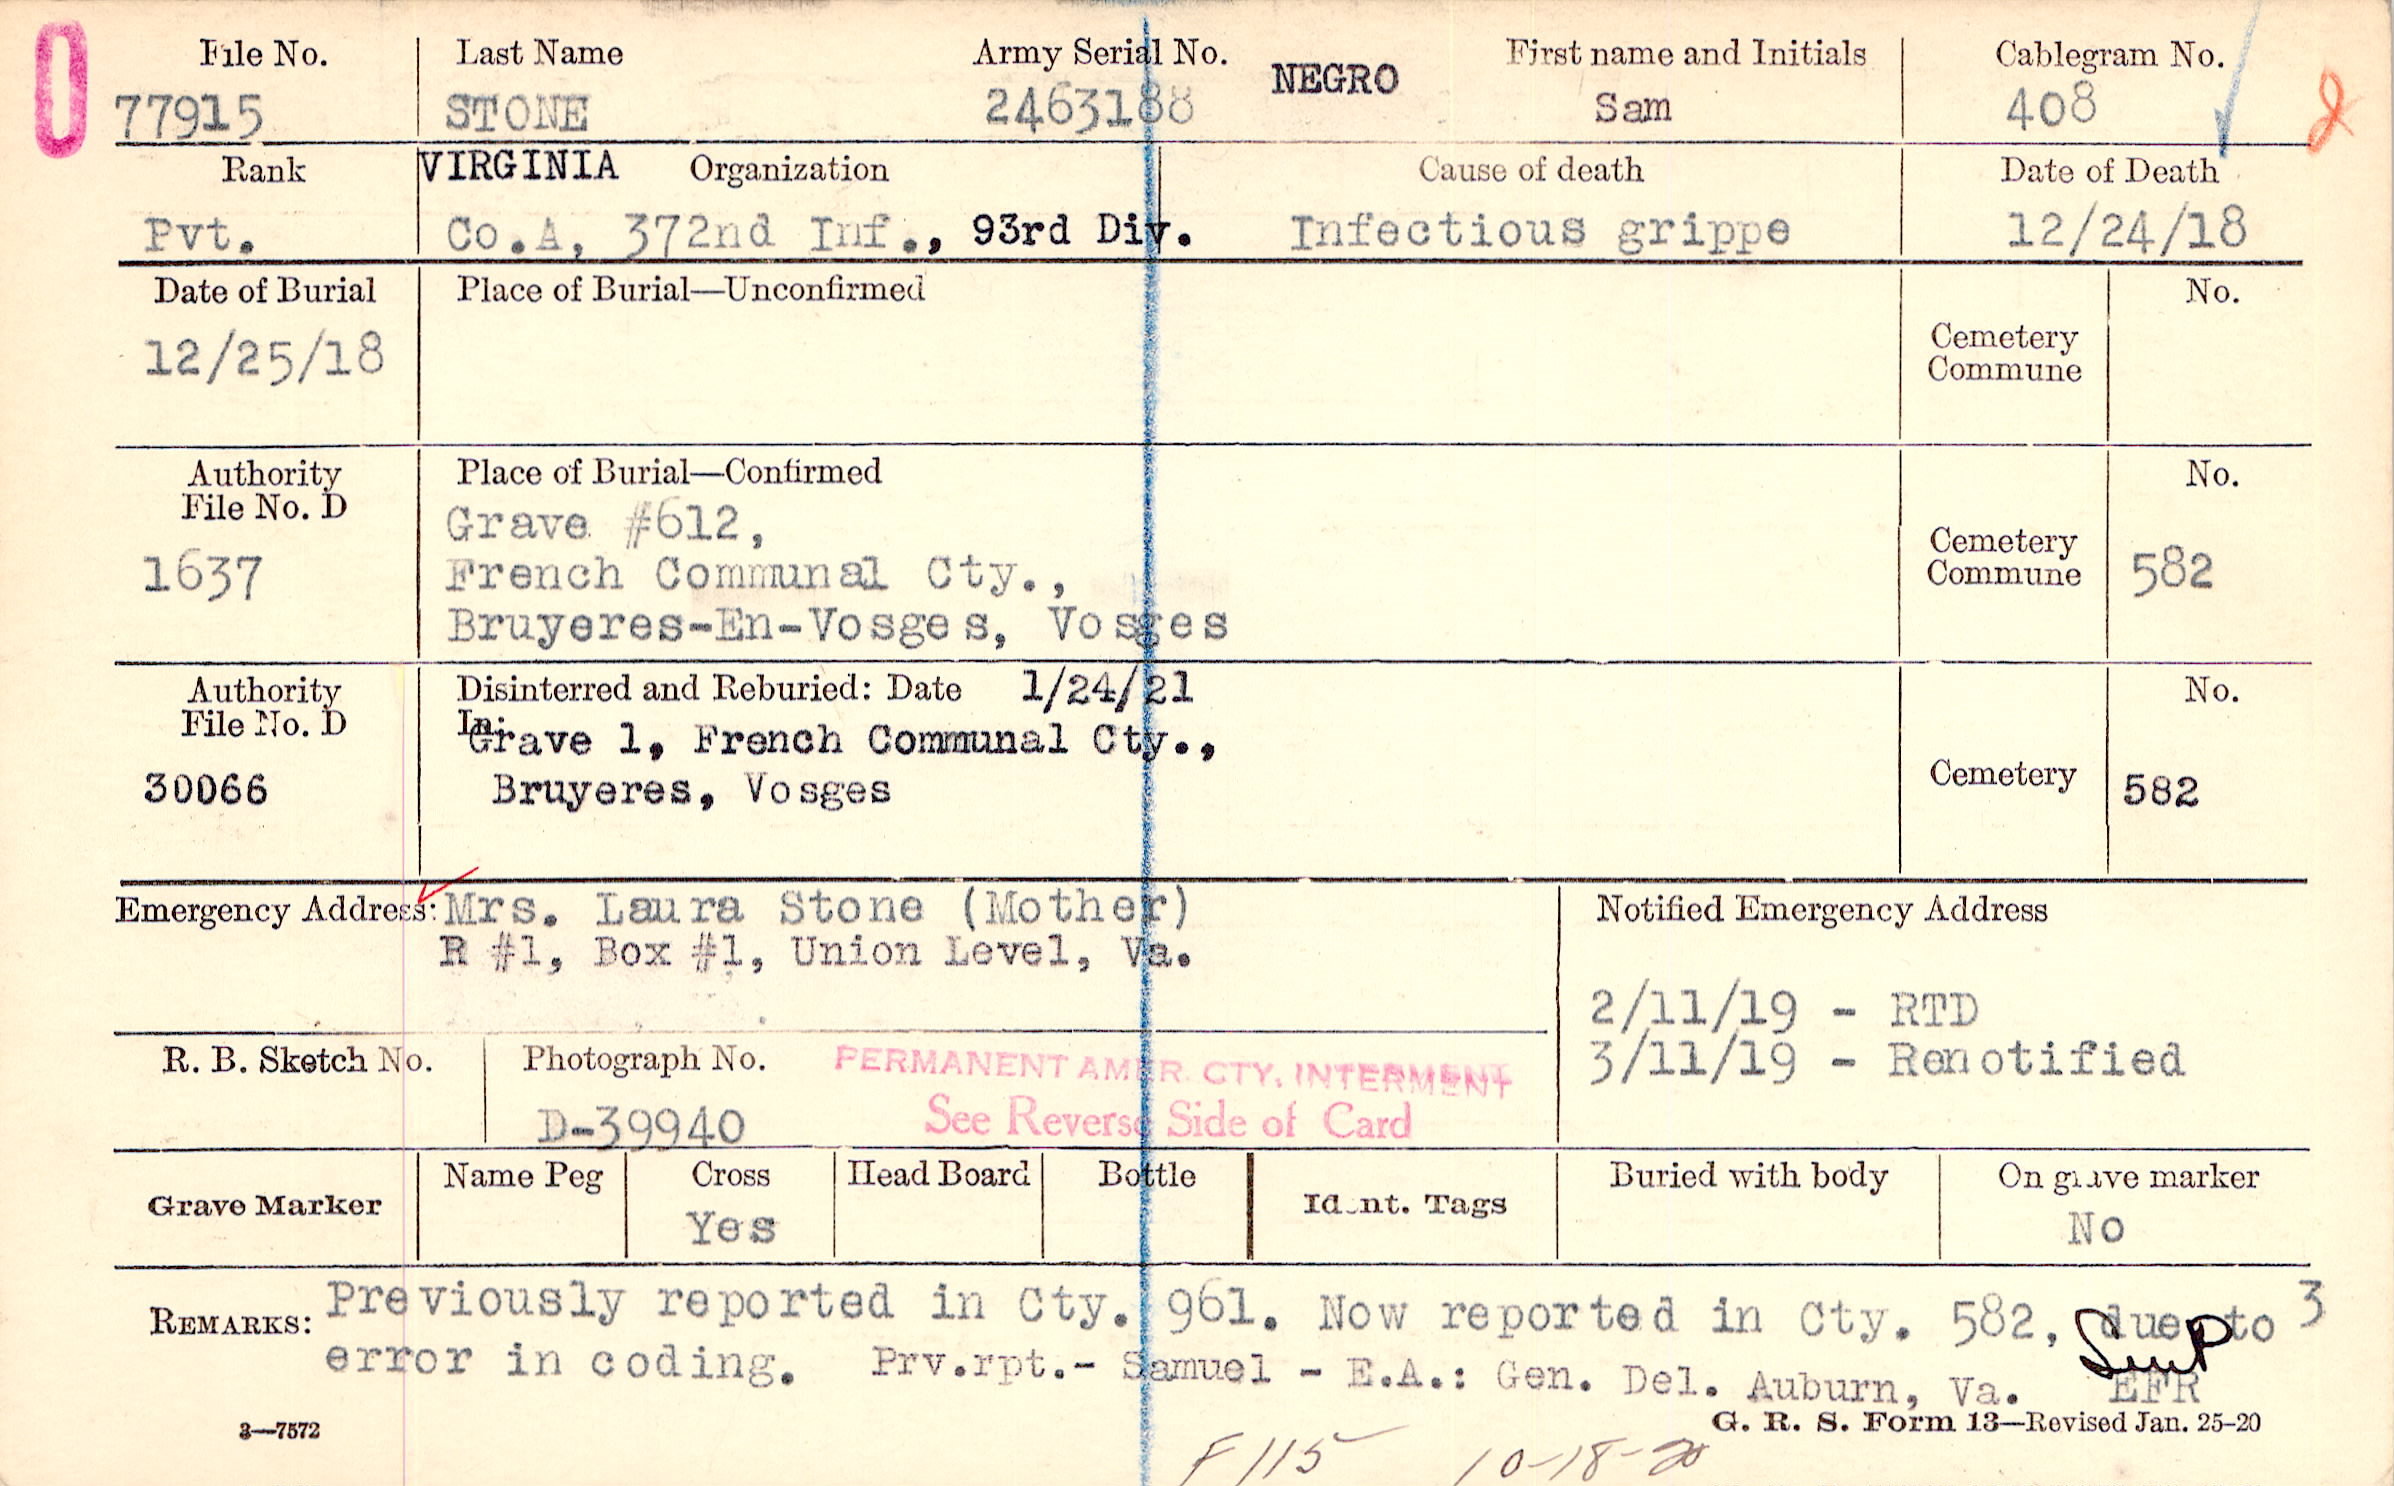 0
File No. Last Name Army Serial No. NEGRO First name and Initials Cablegram No.
77915 STONE 2463188 Sam 408 2
Rank VIRGINIA Organization Cause of death Date of Death
Pvt. Co.A, 372nd Inf., 93rd Div. Infectious grippe 12/24/18
Date of Burial Place of Burial—Unconfirmed No.
12/25/18 Cemetery
Commune
Authority Place of Burial—Confirmed No.
File No. D Grave #612,
1637 French Communal Cty., Cemetery
Commune 582
Bruyeres-En-Vosges, Vosges
Authority Disinterred and Reburied: Date 1/24/21 No.
File No. D In:
Grave 1, French Communal Cty.,
30066 Bruyeres, Vosges Cemetery 582
Emergency Address: Mrs. Laura Stone (Mother) Notified Emergency Address
R #1, Box #1, Union Level, Va.
2/11/19 - RTD
3/11/19 - Renotified
R. B. Sketch No. Photograph No. PERMANENT AMER. CTY. INTERMENT
D-39940 See Reverse Side of Card
Grave Marker Name Peg Cross Head Board Bottle Ident. Tags Buried with body On grave marker
Yes No
REMARKS: Previously reported in Cty. 961. Now reported in Cty. 582, due to 3
error in coding. Prv.rpt.- Samuel - E.A.: Gen. Del. Auburn, Va. EFR
3—7572 G. R. S. Form 13—Revised Jan. 25-20
F 115 10-18-20